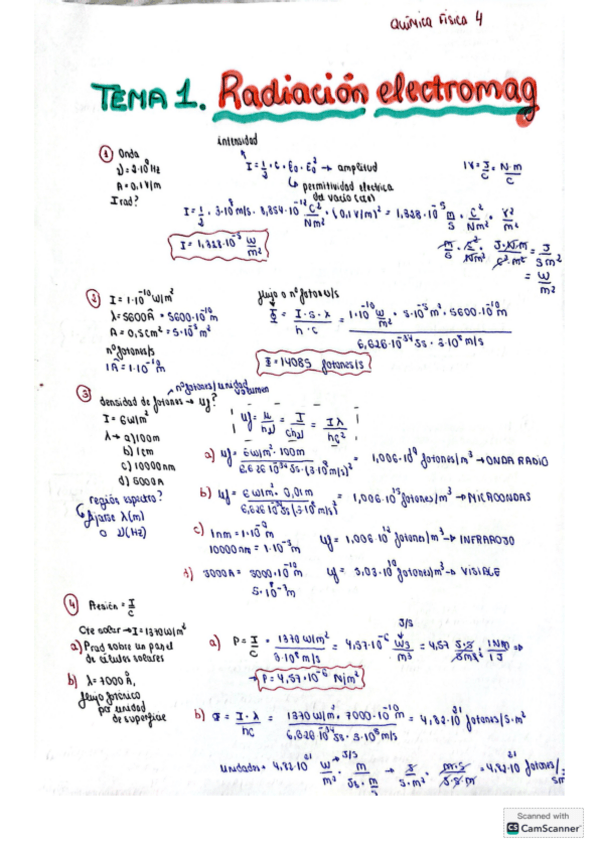 QUÍMICA FÍSICA 4
TEMA 1. Radiación electromag
① Onda
ν = 2·10⁸ Hz
A = 0,1 V/m
I rad?
intensidad
I = 1/2 · c · ε₀ · E₀² → amplitud
↳ permitividad electrica del vacío
1V = J/C = N·m/C
I = 1/2 · 3·10⁸ m/s · 8,854·10⁻¹² C²/Nm² · (0,1 V/m)² = 1,328·10⁻⁵ m/s · C²/Nm² · V²/m²
I = 1,328·10⁻⁵ W/m²
m/s · C²/Nm² · J·N·m/C²·m² = J/Sm²
= W/m²
② I = 1·10⁻¹⁰ W/m²
λ = 5600Å = 5600·10⁻¹⁰ m
A = 0,5 cm² = 5·10⁻⁵ m²
nº fotones/s
1Å = 1·10⁻¹⁰ m
flujo o nº fotones/s
Φ = I·S·λ / h·c = 1·10⁻¹⁰ W/m² · 5·10⁻⁵ m² · 5600·10⁻¹⁰ m / 6,626·10⁻³⁴ Js · 3·10⁸ m/s
Φ = 14085 fotones/s
③ densidad de fotones → uf?
nº fotones/unidad volumen
I = 6 W/m²
λ → a) 100m
b) 1cm
c) 10000 nm
d) 5000 Å
región espectro?
↳ fijarse λ(m)
o ν(Hz)
uf = u/hν = I/chν = Iλ/hc²
a) uf = 6 W/m² · 100m / 6,626·10⁻³⁴ Js · (3·10⁸ m/s)² = 1,006·10¹⁹ fotones/m³ → ONDA RADIO
b) uf = 6 W/m² · 0,01m / 6,626·10⁻³⁴ Js (3·10⁸ m/s)² = 1,006·10¹⁵ fotones/m³ → MICROONDAS
c) 1nm = 1·10⁻⁹ m
10000 nm = 1·10⁻⁵ m
uf = 1,006·10¹² fotones/m³ → INFRAROJO
d) 5000Å = 5000·10⁻¹⁰ m
5·10⁻⁷ m
uf = 5,03·10¹⁰ fotones/m³ → VISIBLE
④ Presión = I/c
Cte solar → I = 1370 W/m²
a) Prad sobre un panel
de células solares
b) λ = 7000 Å,
flujo fotónico
por unidad
de superficie
a) P = I/c = 1370 W/m² / 3·10⁸ m/s = 4,57·10⁻⁶ Ws/m³ = 4,57 J·s/sm³ · 1NM/1J ⇒
J/s
→ P = 4,57·10⁻⁶ N/m²
b) σ = I·λ/hc = 1370 W/m² · 7000·10⁻¹⁰ m / 6,626·10⁻³⁴ Js · 3·10⁸ m/s = 4,82·10²¹ fotones/s·m²
Unidades = 4,82·10²¹ W/m² · m/Js·m/s
J/s
= 4,82·10²¹ fotones/sm²
Scanned with
CS CamScanner